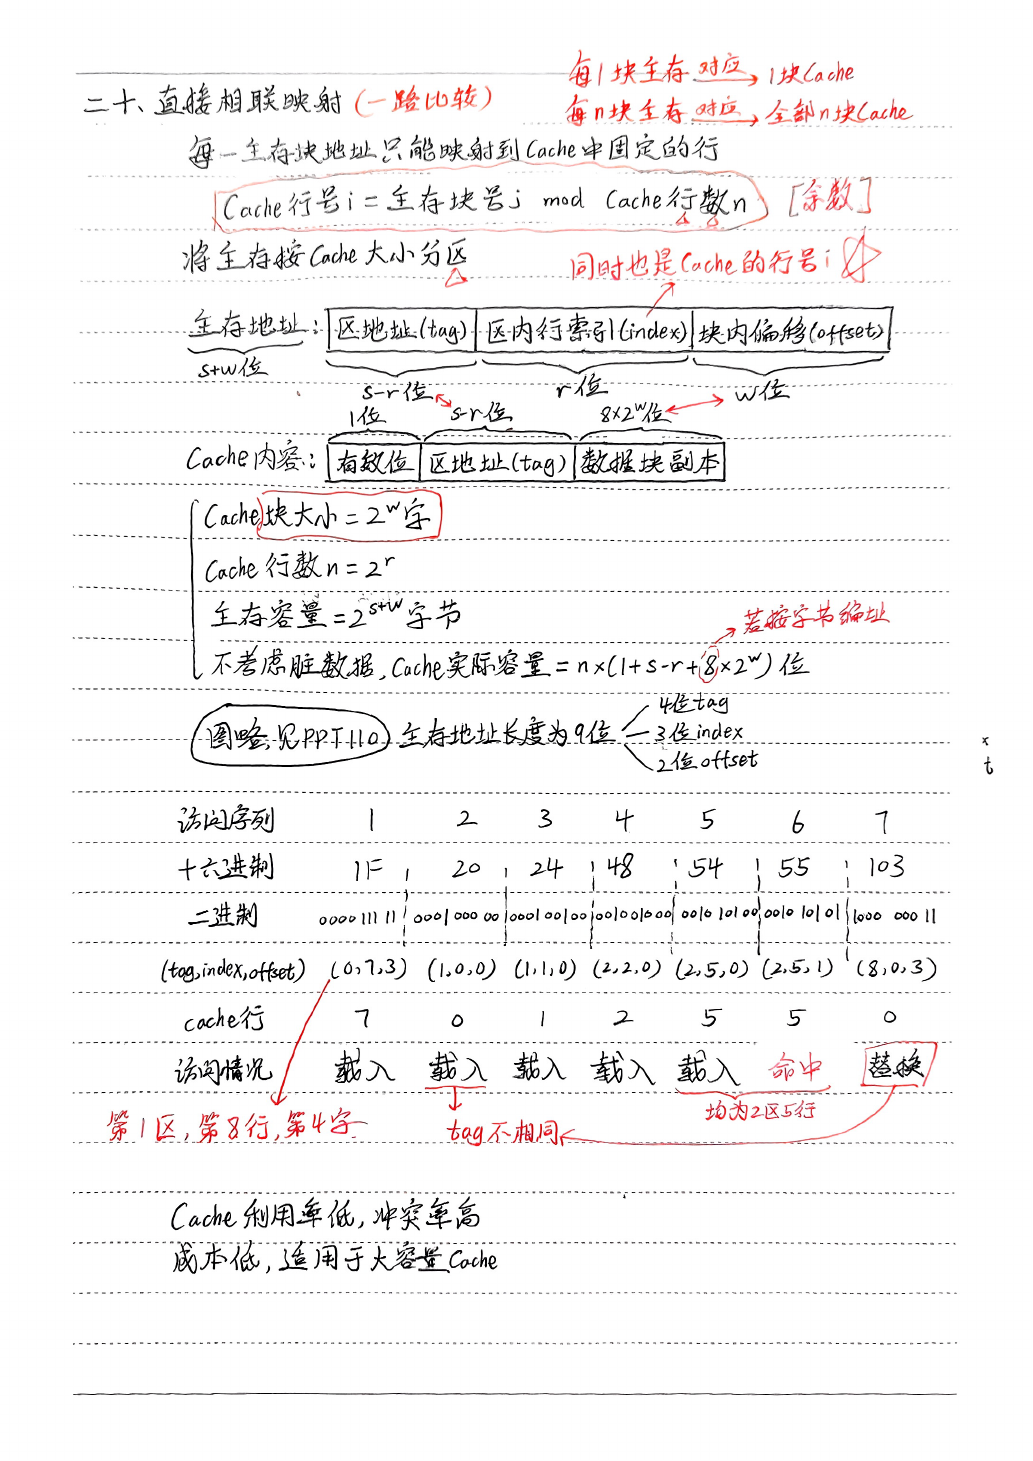 每1块主存 对应→ 1块Cache
二十、直接相联映射(一路比较)
每n块主存 对应→ 全部n块Cache
每一主存块地址只能映射到Cache中固定的行
Cache行号i=主存块号j mod Cache行数n [余数]
将主存按Cache大小分区
同时也是Cache的行号i
主存地址: 区地址(tag) 区内行索引(index) 块内偏移(offset)
s+w位 s-r位 r位 w位
1位 s-r位 8×2^w位
Cache内容: 有效位 区地址(tag) 数据块副本
Cache块大小=2^w字
Cache行数n=2^r
主存容量=2^(s+w)字节
若按字节编址
不考虑脏数据,Cache实际容量=n×(1+s-r+8×2^w)位
图略,见PPT110 主存地址长度为9位
4位tag
3位index
2位offset
x
t
访问序列 1 2 3 4 5 6 7
十六进制 1F 20 24 48 54 55 103
二进制 0000 111 11 0001 000 00 0001 001 00 0010 010 00 0010 101 00 0010 101 01 1000 000 11
(tag,index,offset) (0,7,3) (1,0,0) (1,1,0) (2,2,0) (2,5,0) (2,5,1) (8,0,3)
cache行 7 0 1 2 5 5 0
访问情况 载入 载入 载入 载入 载入 命中 替换
均为2区5行
第1区,第8行,第4字
tag不相同
Cache利用率低,冲突率高
成本低,适用于大容量Cache